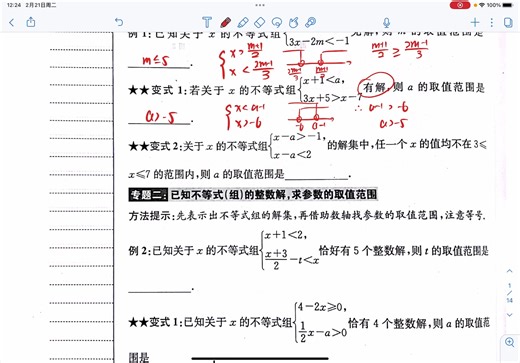 12:24 2月21日周二
100%
例1:已知关于 x 的不等式组 3x-2m<-1 无解,则 m 的取值范围是
m≤5 .
★★变式1:若关于 x 的不等式组{x+1<a, 3x+5>x-7 有解,则 a 的取值范围是
a>-5 . {x<a-1 x>-6 -6 a-1 ∴ a-1>-6
a>-5
★★变式2:关于 x 的不等式组{x-a>-1, x-a<2 的解集中,任一个 x 的值均不在 3≤
x≤7 的范围内,则 a 的取值范围是 .
专题二:已知不等式(组)的整数解,求参数的取值范围
方法提示:先表示出不等式组的解集,再借助数轴找参数的取值范围,注意等号.
例2:已知关于 x 的不等式组{x+1<2, (x+3)/2-t<x 恰好有5个整数解,则 t 的取值范围是
.
★★变式1:已知关于 x 的不等式组{4-2x≥0, 1/2x-a>0 恰有4个整数解,则 a 的取值范
围是
1
14